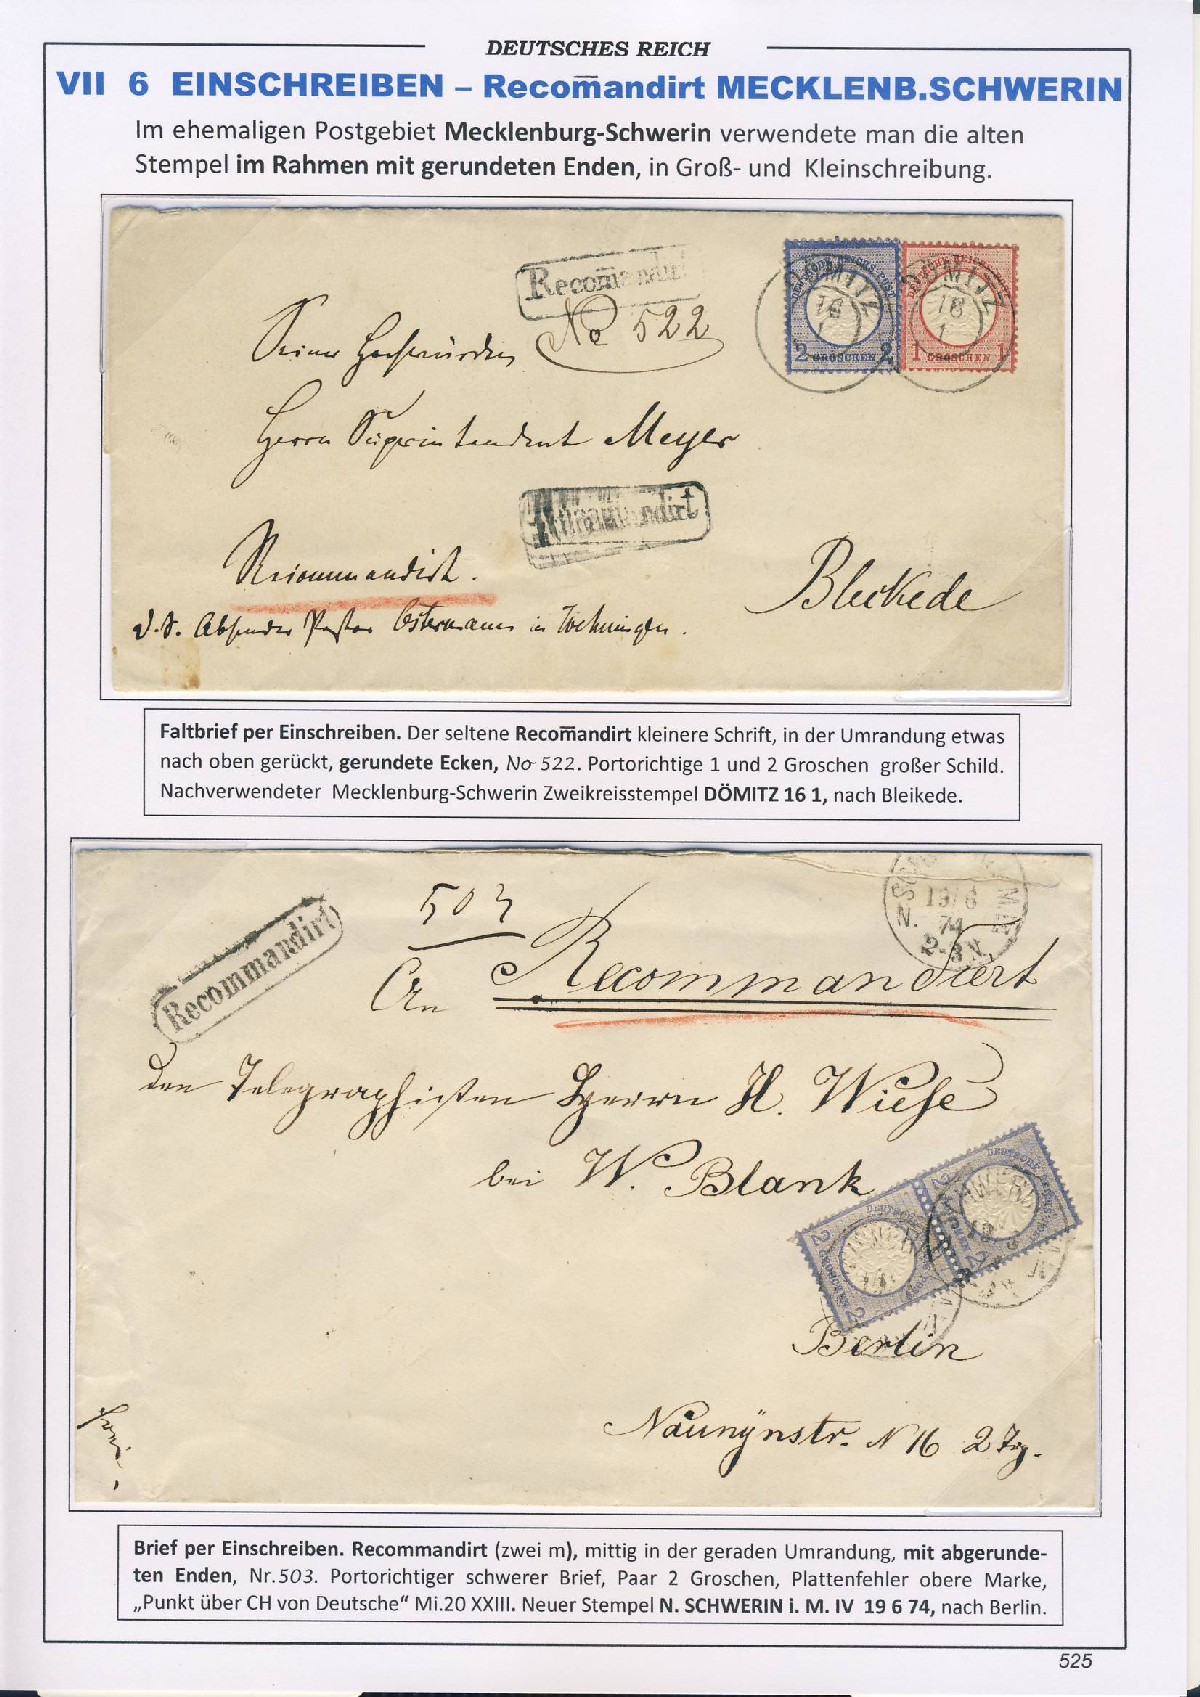 DEUTSCHES REICH
VII 6 EINSCHREIBEN – Recom̅andirt MECKLENB.SCHWERIN
Im ehemaligen Postgebiet Mecklenburg-Schwerin verwendete man die alten
Stempel im Rahmen mit gerundeten Enden, in Groß- und Kleinschreibung.
Recom̅andirt
No 522
DÖMITZ
16
1
DÖMITZ
16
1
2 GROSCHEN 2
1 GROSCHEN 1
Seiner Hochwürden
Herrn Superintendent Meyer
Recom̅andirt
Recommandirt.
Bleckede
Absender Pastor Ostermann in
Faltbrief per Einschreiben. Der seltene Recom̅andirt kleinere Schrift, in der Umrandung etwas
nach oben gerückt, gerundete Ecken, No 522. Portorichtige 1 und 2 Groschen großer Schild.
Nachverwendeter Mecklenburg-Schwerin Zweikreisstempel DÖMITZ 16 1, nach Bleikede.
503
19/6
N. 74
2-3 N.
Recommandirt
An Recommandiert
den Telegraphisten Herrn H. Wiese
bei W. Blank
Berlin
Naunÿnstr. N 16 2 Trp.
frei
Brief per Einschreiben. Recommandirt (zwei m), mittig in der geraden Umrandung, mit abgerunde-
ten Enden, Nr.503. Portorichtiger schwerer Brief, Paar 2 Groschen, Plattenfehler obere Marke,
„Punkt über CH von Deutsche“ Mi.20 XXIII. Neuer Stempel N. SCHWERIN i. M. IV 19 6 74, nach Berlin.
525